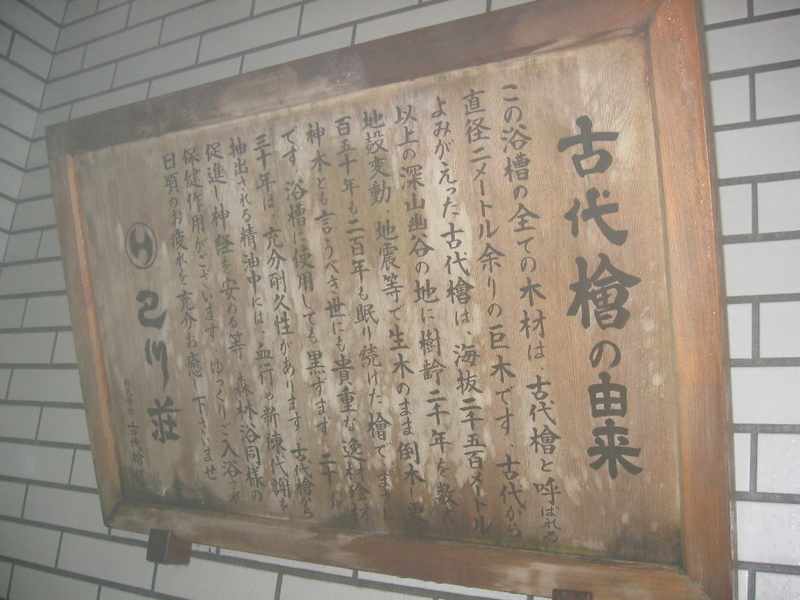 古代檜の由来
この浴槽の全ての木材は、古代檜と呼ばれる
直径二メートル余りの巨木です。古代から
よみがえった古代檜は、海抜二千五百メートル
以上の深山幽谷の地に樹齢二千年を数え
地殻変動、地震等で生木のまま倒木し更
百五十年も二百年も眠り続けた檜で、まさに
神木とも言うべき世にも貴重な逸材
です。浴槽に使用しても黒ずまず
三十年は、充分耐久性があります。古代檜から
抽出される精油中には、血行や新陳代謝を
促進し神経を安める等、森林浴同様の
保健作用がございます。ゆっくりご入浴され
日頃のお疲れを充分お癒し下さいませ。
己川荘
古代檜